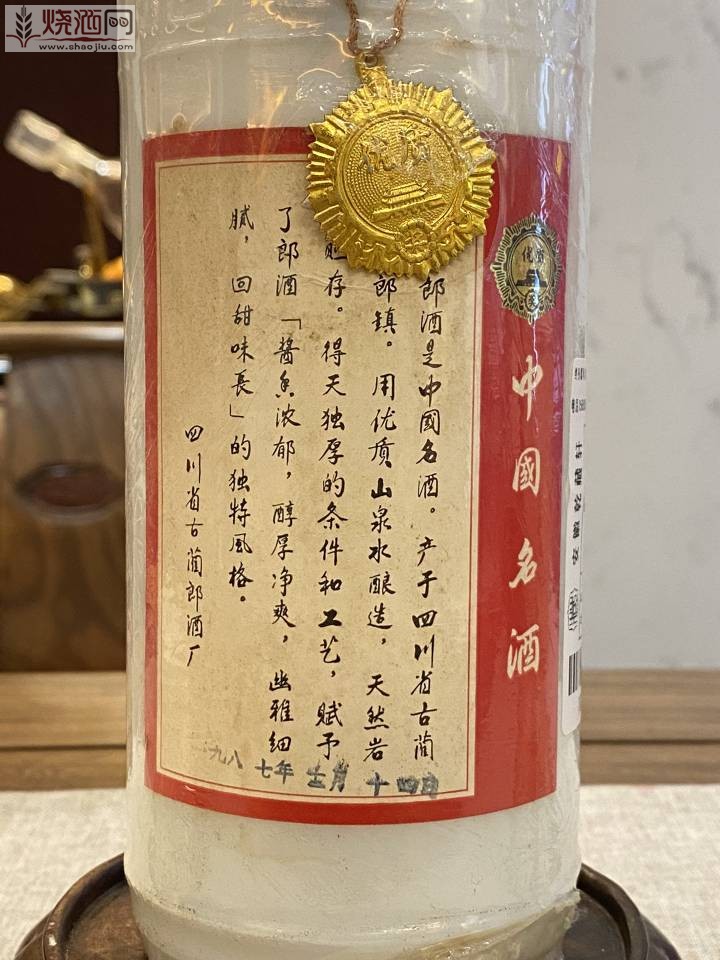 烧酒网
www.shaojiu.com
优质
优质
中國名酒
郎酒是中國名酒。产于四川省古蔺
郎镇。用优质山泉水酿造，天然岩
贮存。得天独厚的条件和工艺，赋予
了郎酒「醬香浓郁，醇厚净爽，幽雅细
腻，回甜味長」的独特風格。
四川省古蔺郎酒厂
一九八七年十二月十四日